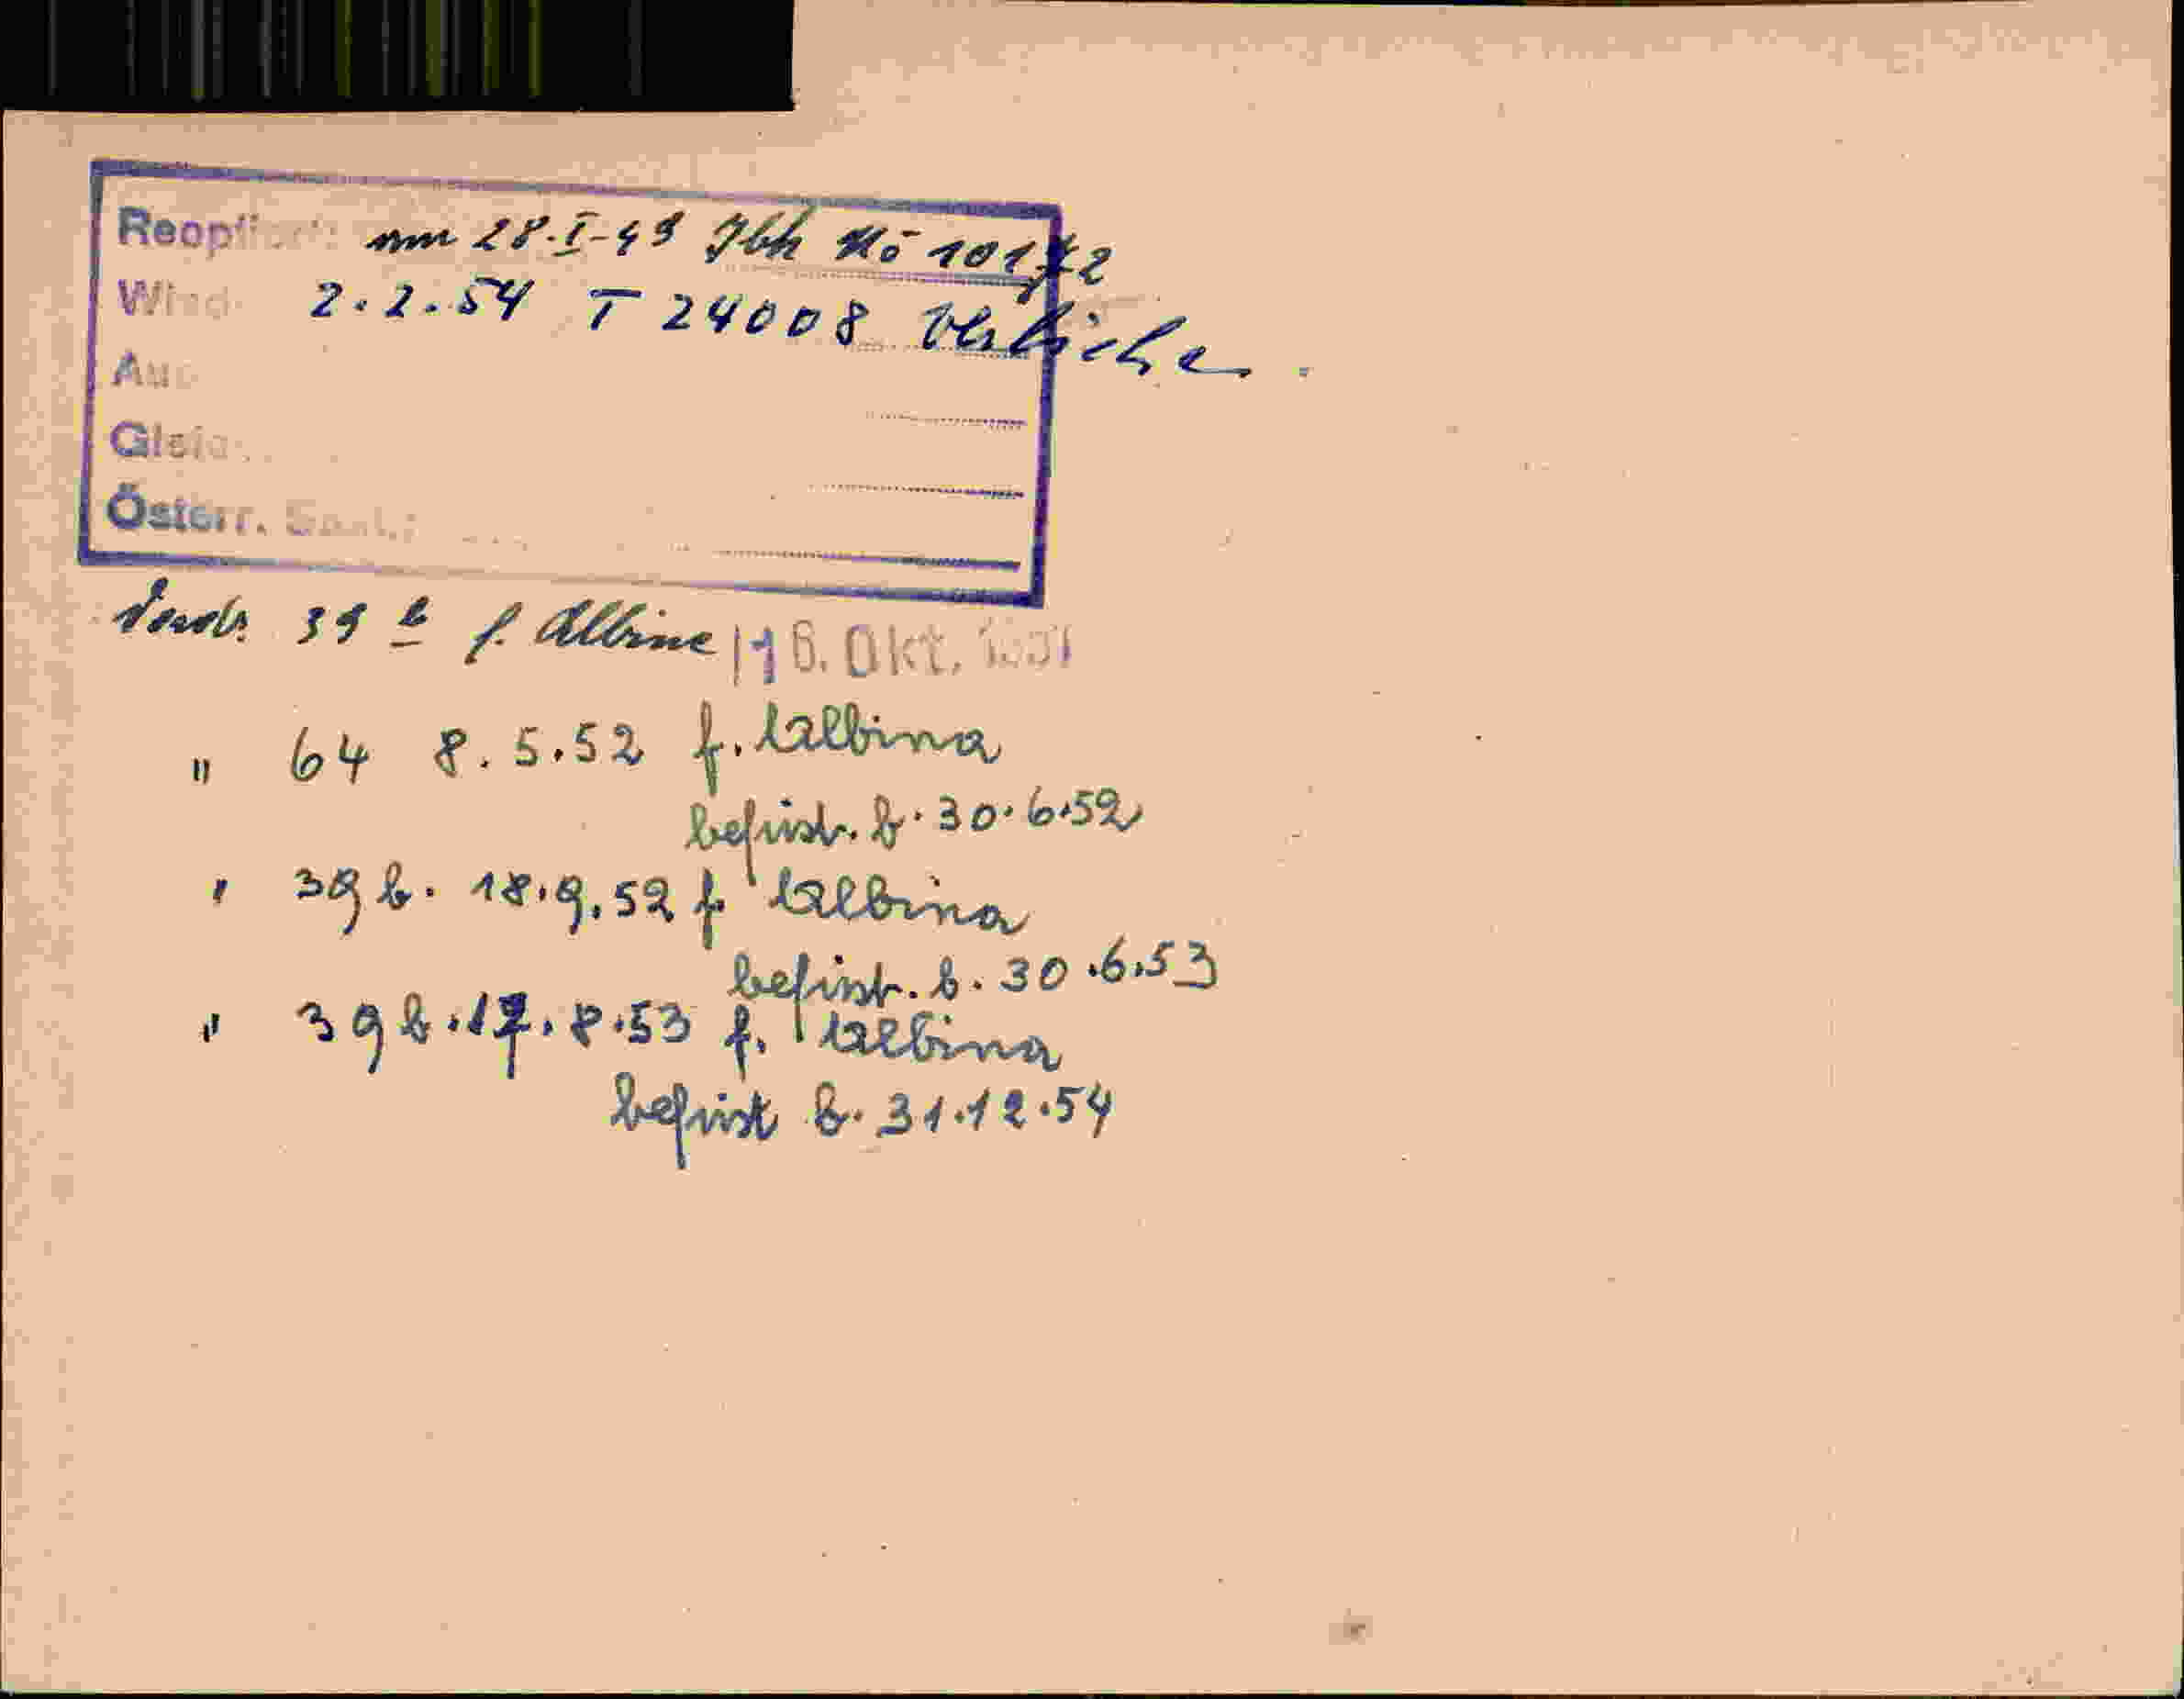 Reoptiert: am 28.I-49 Jbk Nö 10172
Wied 2.2.54 T 24008
Aus
Gleic
Österr. Saat.:
39 b f. Albine 16. Okt. 1951
" 64 8.5.52 f. Albina
befrist. b. 30.6.52
" 39 b. 18.9.52 f Albina
befrist. b. 30.6.53
" 39 b. 17.8.53 f. Albina
befrist b. 31.12.54